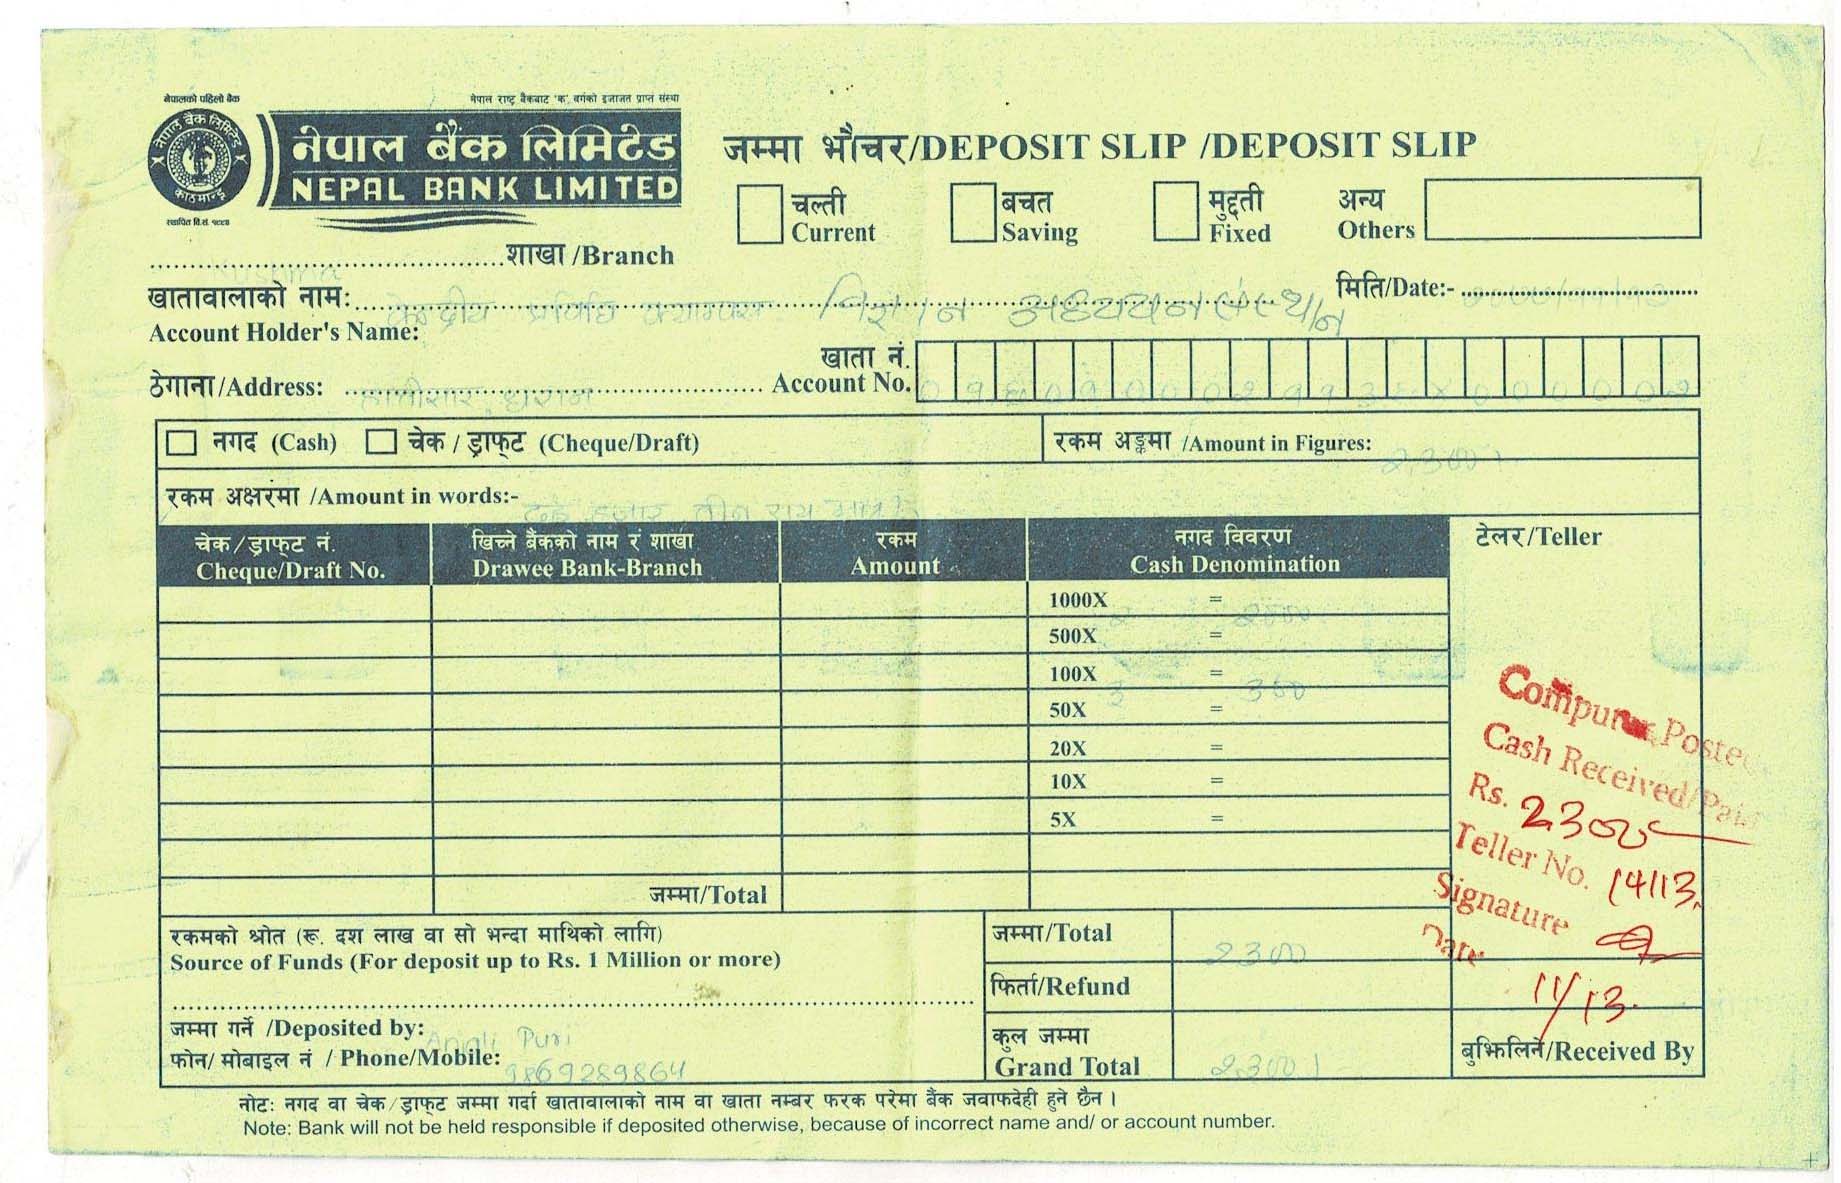 नेपालको पहिलो बैंक
नेपाल राष्ट्र बैंकबाट 'क' वर्गको इजाजत प्राप्त संस्था
नेपाल बैंक लिमिटेड
काठमाण्डू
नेपाल बैंक लिमिटेड
NEPAL BANK LIMITED
स्थापित वि.सं. १९९४
जम्मा भौचर/DEPOSIT SLIP /DEPOSIT SLIP
चल्ती
Current
बचत
Saving
मुद्दती
Fixed
अन्य
Others
Kushma
शाखा /Branch
मिति/Date:-
खातावालाको नामः केन्द्रीय प्रविधि क्याम्पस विज्ञान अध्ययन संस्थान
Account Holder's Name:
खाता नं.
Account No.
ठेगाना/Address: हात्तीसार, धरान
नगद (Cash) चेक / ड्राफ्ट (Cheque/Draft)
रकम अङ्कमा /Amount in Figures: 2300/-
रकम अक्षरमा /Amount in words:- दुई हजार तीन सय मात्र
चेक/ड्राफ्ट नं.
Cheque/Draft No.
खिच्ने बैंकको नाम र शाखा
Drawee Bank-Branch
रकम
Amount
नगद विवरण
Cash Denomination
टेलर/Teller
1000X 2 = 2000
500X =
100X 3 = 300
50X =
20X =
10X =
5X =
जम्मा/Total
Computer Posted
Cash Received/Paid
Rs. 2300
Teller No. 14113
Signature
Date 11/13
रकमको श्रोत (रू. दश लाख वा सो भन्दा माथिको लागि)
Source of Funds (For deposit up to Rs. 1 Million or more)
जम्मा/Total 2300
फिर्ता/Refund
जम्मा गर्ने /Deposited by: Anjali Puri
फोन/ मोबाइल नं / Phone/Mobile: 9869289864
कुल जम्मा
Grand Total 2300/-
बुझिलिने/Received By
नोटः नगद वा चेक/ड्राफ्ट जम्मा गर्दा खातावालाको नाम वा खाता नम्बर फरक परेमा बैंक जवाफदेही हुने छैन ।
Note: Bank will not be held responsible if deposited otherwise, because of incorrect name and/ or account number.